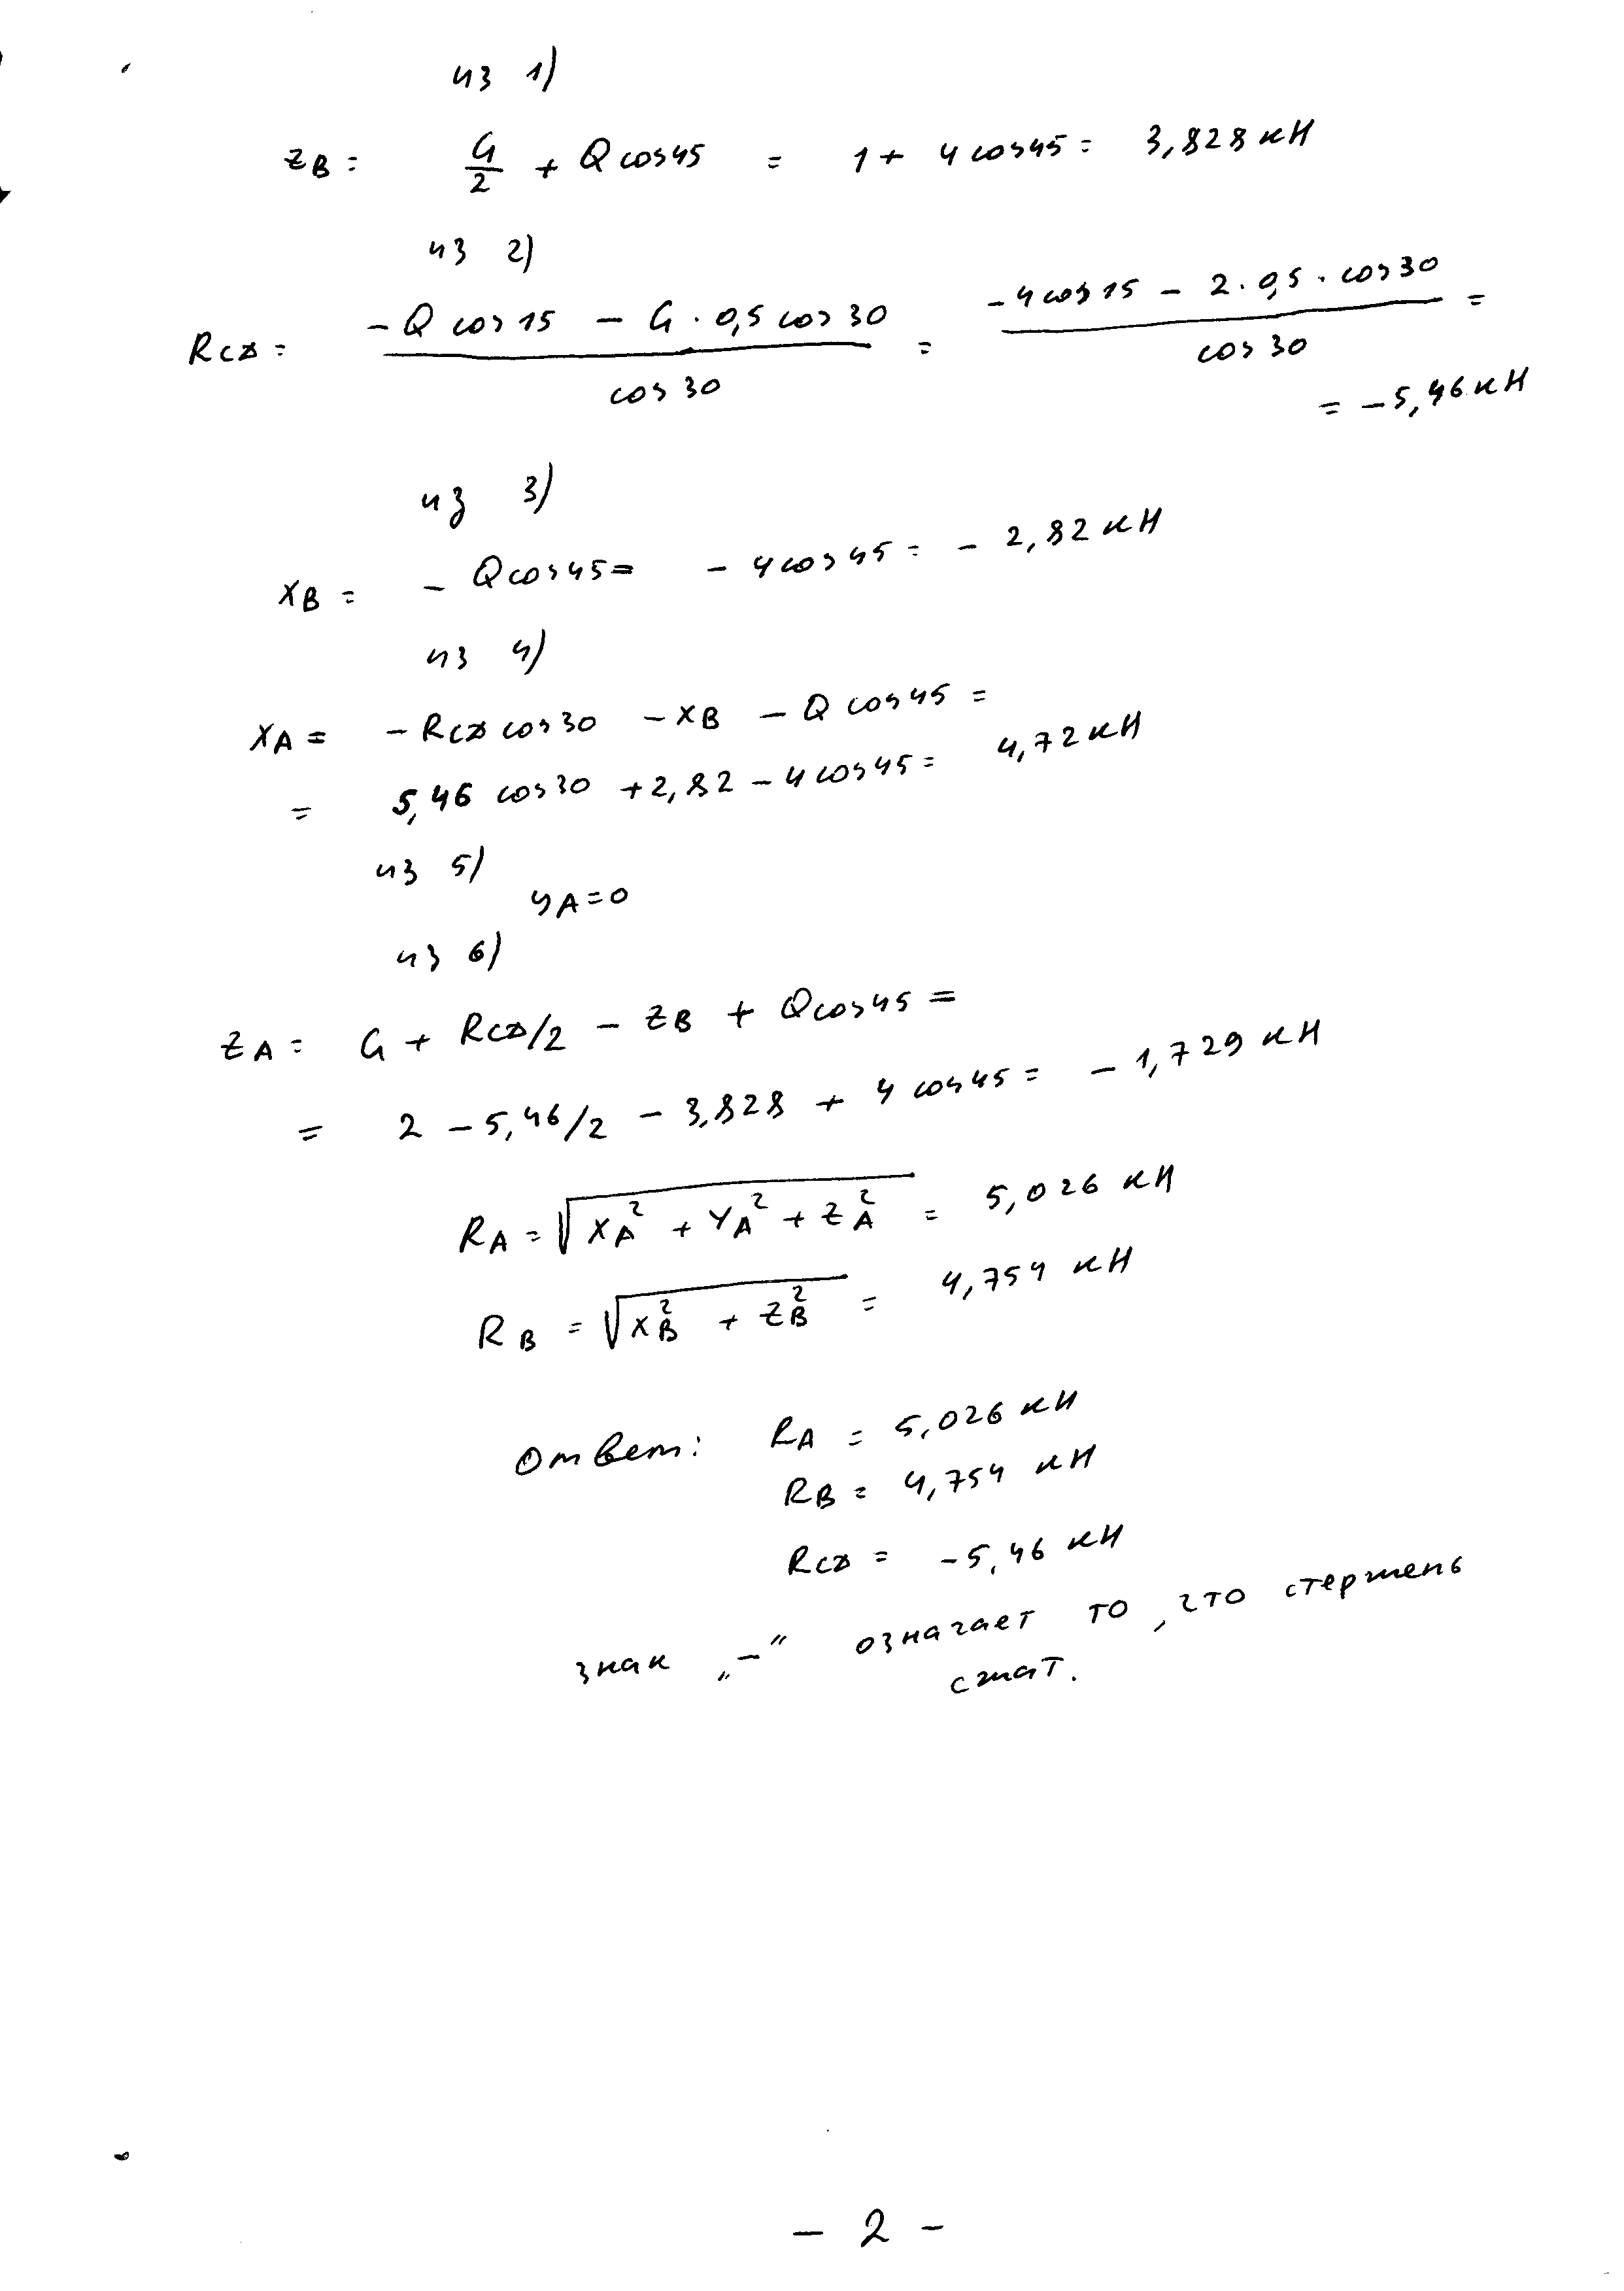 из 1)
zB = G/2 + Q cos45 = 1 + 4 cos45 = 3,828 кН
из 2)
RCD = (-Q cos15 - G · 0,5 cos30)/cos30 = (-4 cos15 - 2 · 0,5 · cos30)/cos30 =
= -5,46 кН
из 3)
XB = - Q cos45 = - 4 cos45 = - 2,82 кН
из 4)
XA = - RCD cos30 - XB - Q cos45 =
= 5,46 cos30 + 2,82 - 4 cos45 = 4,72 кН
из 5)
YA = 0
из 6)
ZA = G + RCD/2 - ZB + Q cos45 =
= 2 - 5,46/2 - 3,828 + 4 cos45 = - 1,729 кН
RA = √(XA² + YA² + ZA²) = 5,026 кН
RB = √(XB² + ZB²) = 4,754 кН
Ответ: RA = 5,026 кН
RB = 4,754 кН
RCD = -5,46 кН
знак „-“ означает то, что стержень
сжат.
- 2 -